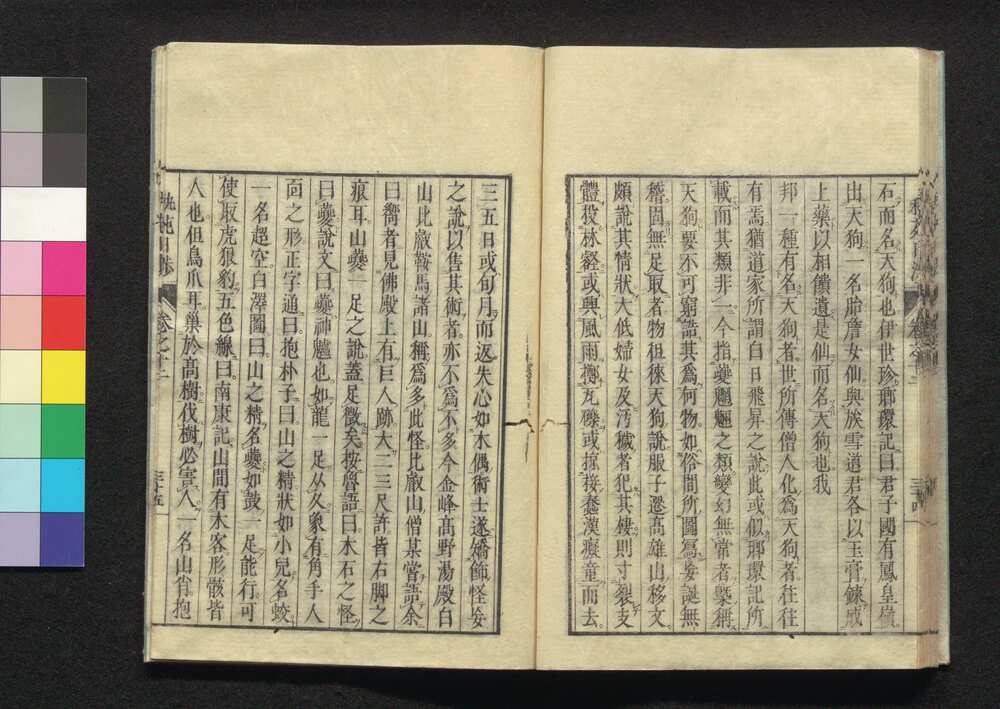 石而名天狗也伊世珍瑯環記曰君子國有鳳皇檥
出大狗一名胎詹女仙與族雪道君各以玉膏鍊成
上藥以相饋遺是仙而名天狗也我
邦一種有名天狗者世所傳僧人化爲天狗者往往
有焉猶道家所謂白日飛昇之說此或似瑯環記所
載而其類非一今指夔魍魎之類變幻無常者槩稱
天狗要不可窮詰其爲何物如俗間所圖寫妄誕無
稽固無足取者物徂徠天狗說服子遷高雄山移文
頗說其情狀大低婦女及汚穢者犯其棲則寸裂支
體投林壑或與風雨擲瓦礫或掠接蠢漢癡童而去
卷之二
三十四
三五日或旬月而返失心如木偶術士遂矯飾怪妄
之說以售其術者亦不爲不多今金峰高野湯殿白
山比叡鞍馬諸山稱爲多此怪比叡山僧某嘗語余
曰嚮者見佛殿上有巨人跡大二三尺許皆右脚之
痕耳山夔一足之說蓋足徵矣按魯語曰木石之怪
曰夔說文曰夔神魖也如龍一足从夂象有角手人
面之形正字通曰抱朴子曰山之精狀如小兒名蛟
一名超空白澤圖曰山之精名夔如鼓一足能行可
使取虎狼豹五色線曰南康記山間有木客形骸皆
人也但鳥爪耳巢於高樹伐樹必害人一名山肖抱
卷之二
三十五